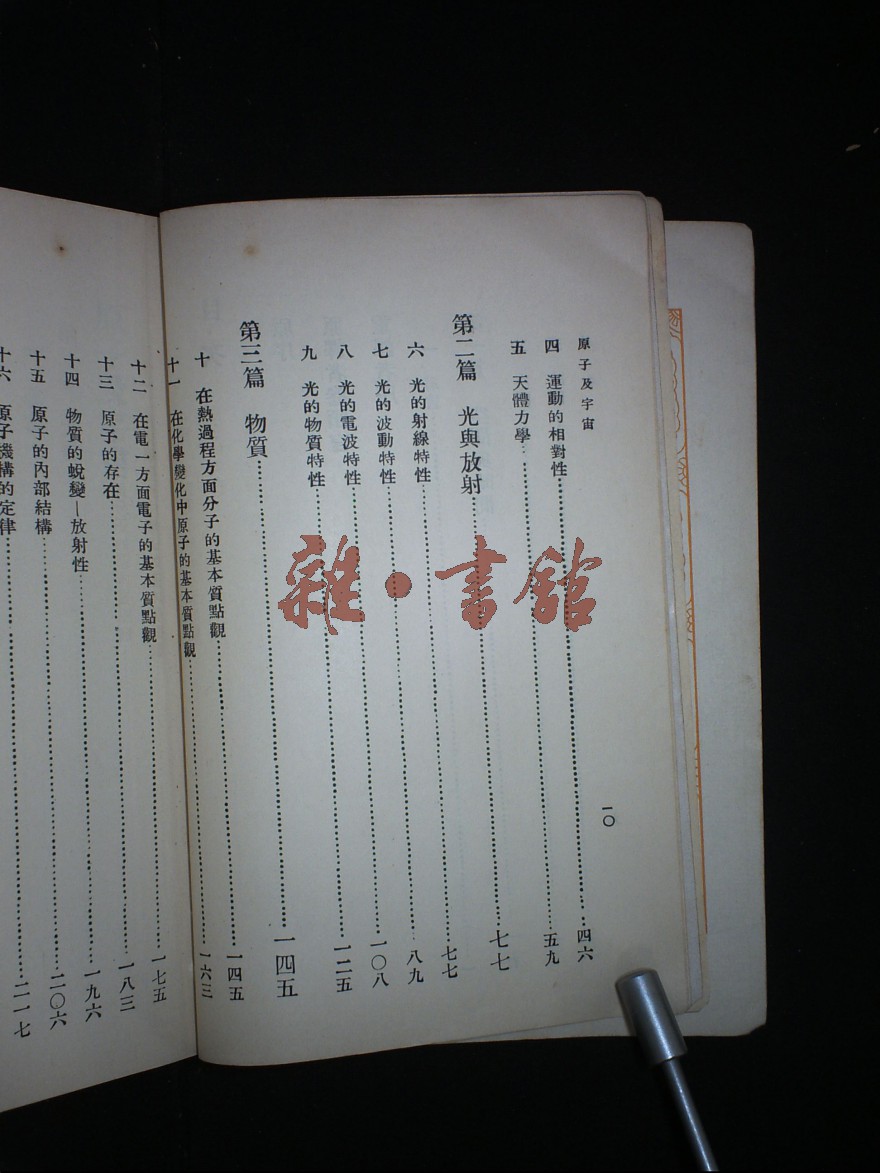 原子及宇宙
一〇
四 運動的相對性……四六
五 天體力學……五九
第二篇 光與放射……七七
六 光的射線特性……七七
七 光的波動特性……八九
八 光的電波特性……一〇八
九 光的物質特性……一二五
第三篇 物質……一四五
十 在熱過程方面分子的基本質點觀……一四五
十一 在化學變化中原子的基本質點觀……一六三
十二 在電一方面電子的基本質點觀……一七五
十三 原子的存在……一八三
十四 物質的蛻變—放射性……一九六
十五 原子的內部結構……二〇六
十六 原子機構的定律……二一七
雜·書館